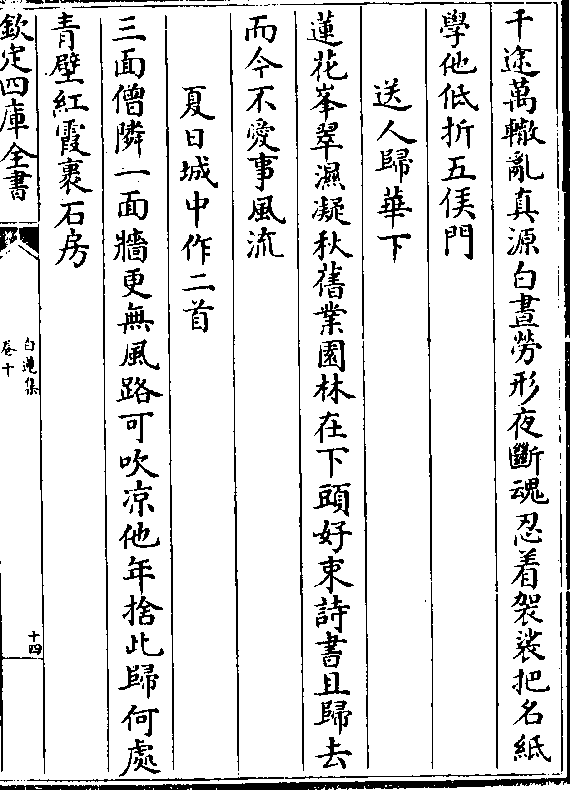 千途萬轍亂真源白晝勞形夜斷魂忍着袈裟把名紙
學他低折五侯門
送人歸華下
蓮花峯翠濕凝秋舊業園林在下頭好束詩書且歸去
而今不愛事風流
夏日城中作二首
三面僧隣一面牆更無風路可吹凉他年捨此歸何處
青壁紅霞裹石房
欽定四庫全書
白蓮集
卷十
十四